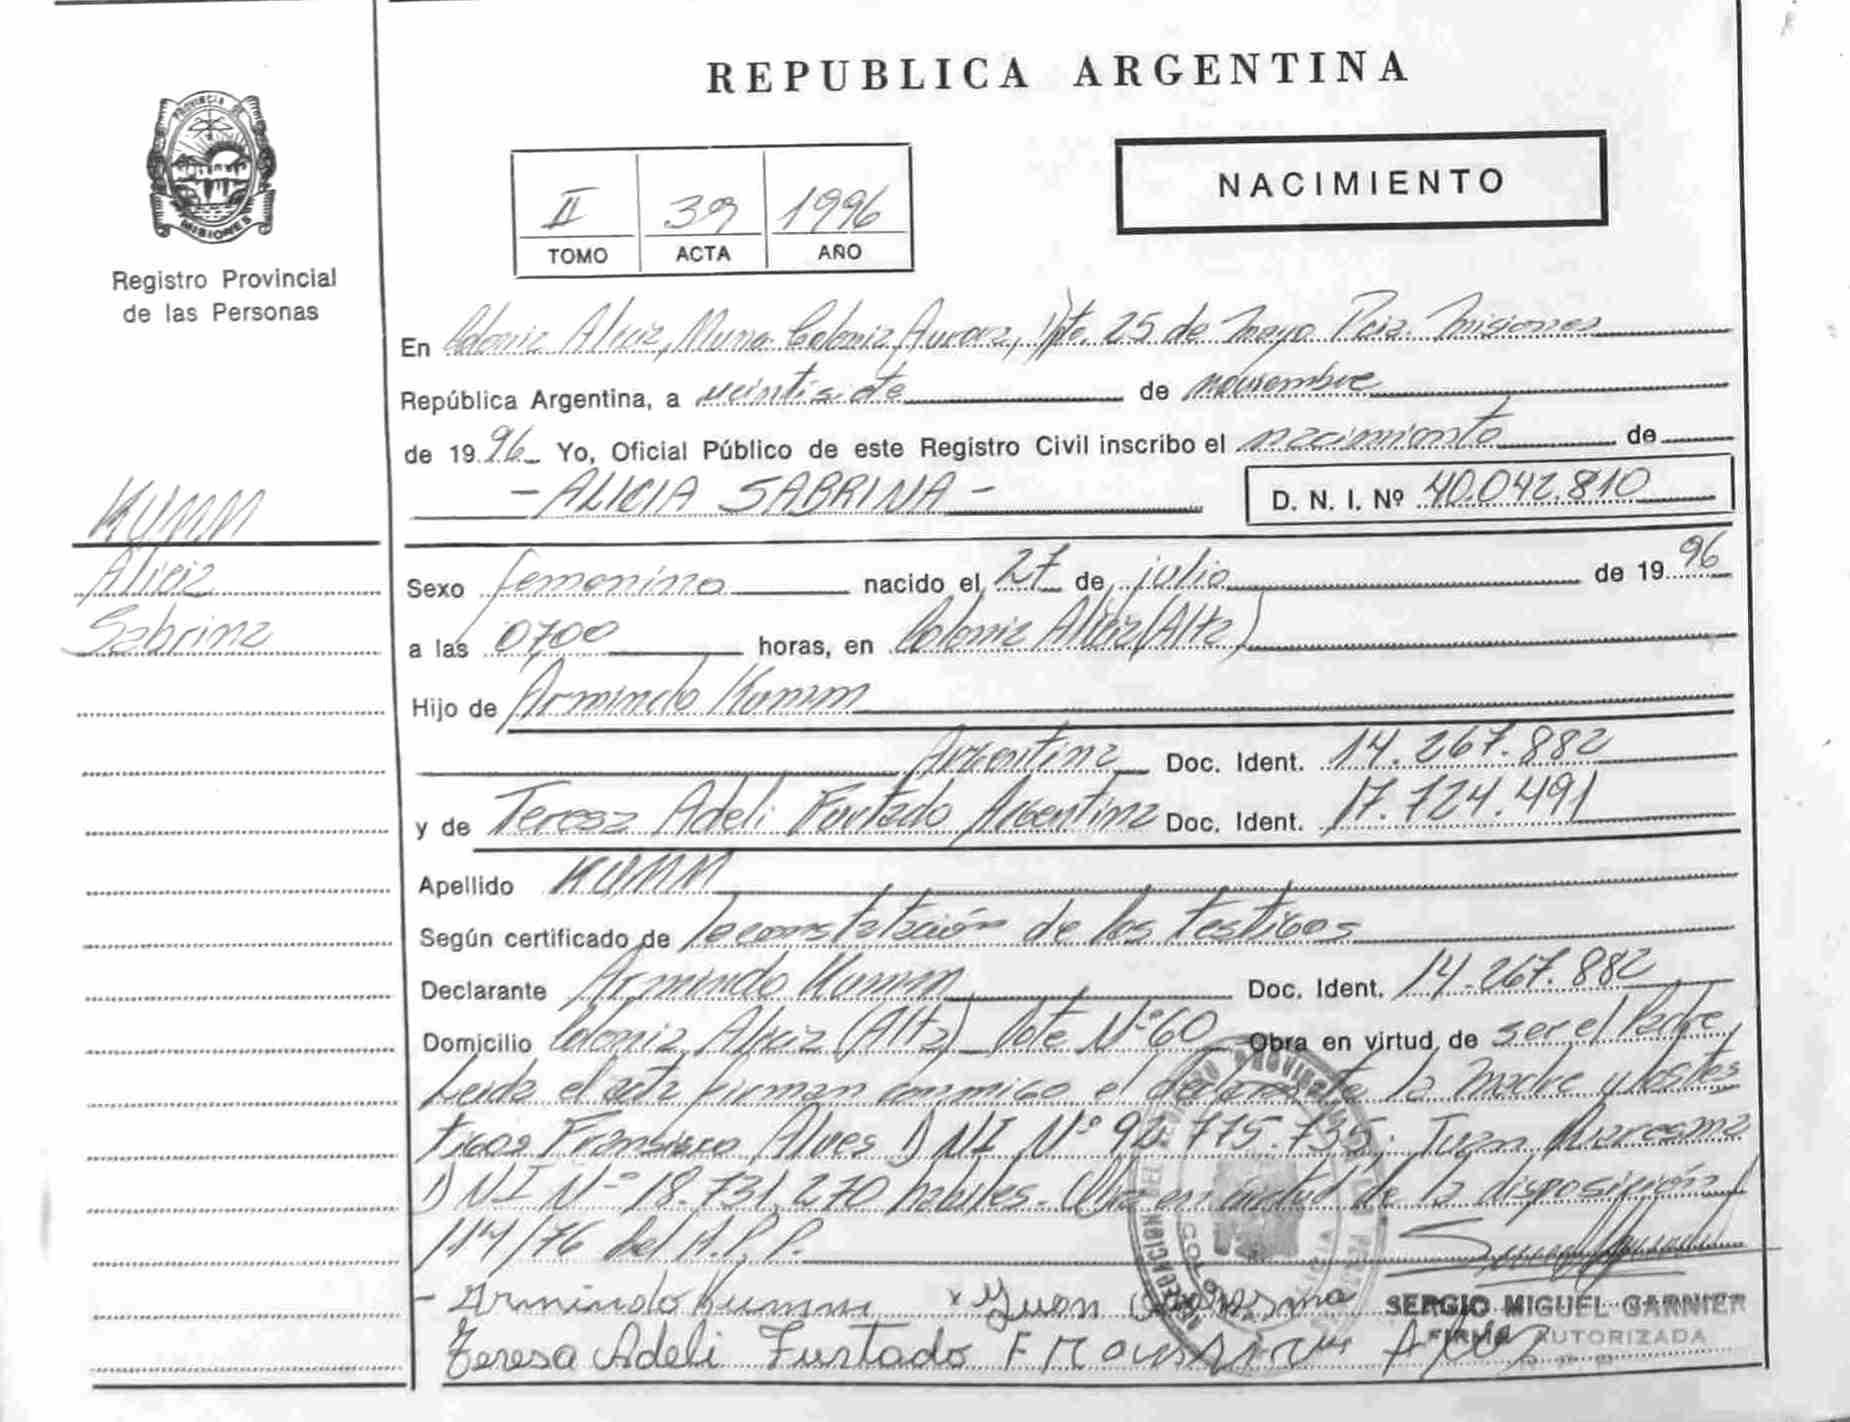 REPUBLICA ARGENTINA
PROVINCIA DE
MISIONES
Registro Provincial
de las Personas
II 39 1996
TOMO ACTA AÑO
NACIMIENTO
En Colonia Alicia, Muna. Colonia Aurora, Dpto. 25 de Mayo Pcia. Misiones
República Argentina, a veintisiete de noviembre
de 1996 Yo, Oficial Público de este Registro Civil inscribo el nacimiento de
- ALICIA SABRINA - D. N. I. Nº 40.042.810
KUMM
Alicia
Sabrina
Sexo femenino nacido el 27 de julio de 1996
a las 0700 horas, en Colonia Alicia (Alta)
Hijo de Armindo Kumm
Argentina Doc. Ident. 14.267.882
y de Teresa Adeli Furtado Argentina Doc. Ident. 17.724.491
Apellido KUMM
Según certificado de la constatación de los testigos
Declarante Armindo Kumm Doc. Ident. 14.267.882
Domicilio Colonia Alicia (Alta) Lote Nº 60 Obra en virtud de ser el Padre
Leida el acta firman conmigo el declarante la madre y los tes
tigos Fransisco Alves DNI Nº 92.775.735; Juan Quaresma
DNI Nº 18.731.270 habiles. Obra en virtud de la disposición
114/76 del R.P.P.
- Armindo Kumm x Juan Quaresma
SERGIO MIGUEL GARNIER
FIRMA AUTORIZADA
Teresa Adeli Furtado Fransisco Alves